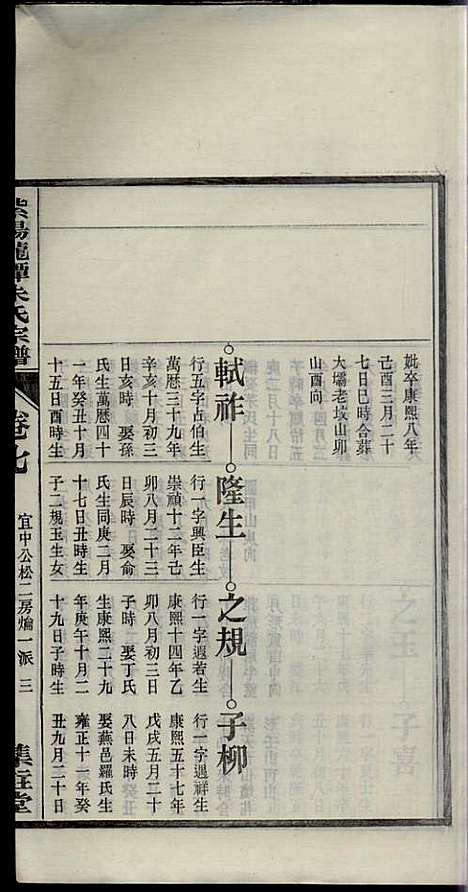 妣卒康熙八年
己酉三月二十
七日巳時合葬
大壩老坟山卯
山酉向
軾祚
行五字占伯生
萬曆三十九年
辛亥十月初三
日亥時 娶孫
氏生萬曆四十
一年癸丑十月
十五日酉時生
隆生
行一字興臣生
崇禎十二年己
卯八月二十三
日辰時 娶俞
氏生同庚二月
十七日丑時生
子二規玉生女
之規
行一字遐若生
康熙十四年乙
卯八月初三日
子時 娶丁氏
生康熙二十九
年庚午十月二
十九日子時生
子柳
行一字遇祥生
康熙五十七年
戊戌五月二十
八日未時
娶燕邑羅氏生
雍正十一年癸
丑九月三十日
紫陽龍潭朱氏宗譜
卷七
宜中公松二房煰一派 三
集註堂